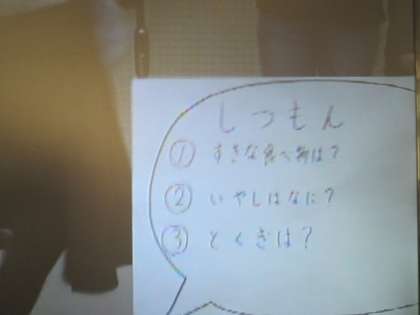 しつもん
① すきな食べ物は?
② いやしはなに?
③ とくぎは?